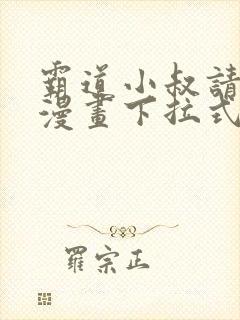 霸道小叔請
漫畫下拉式
羅宗正